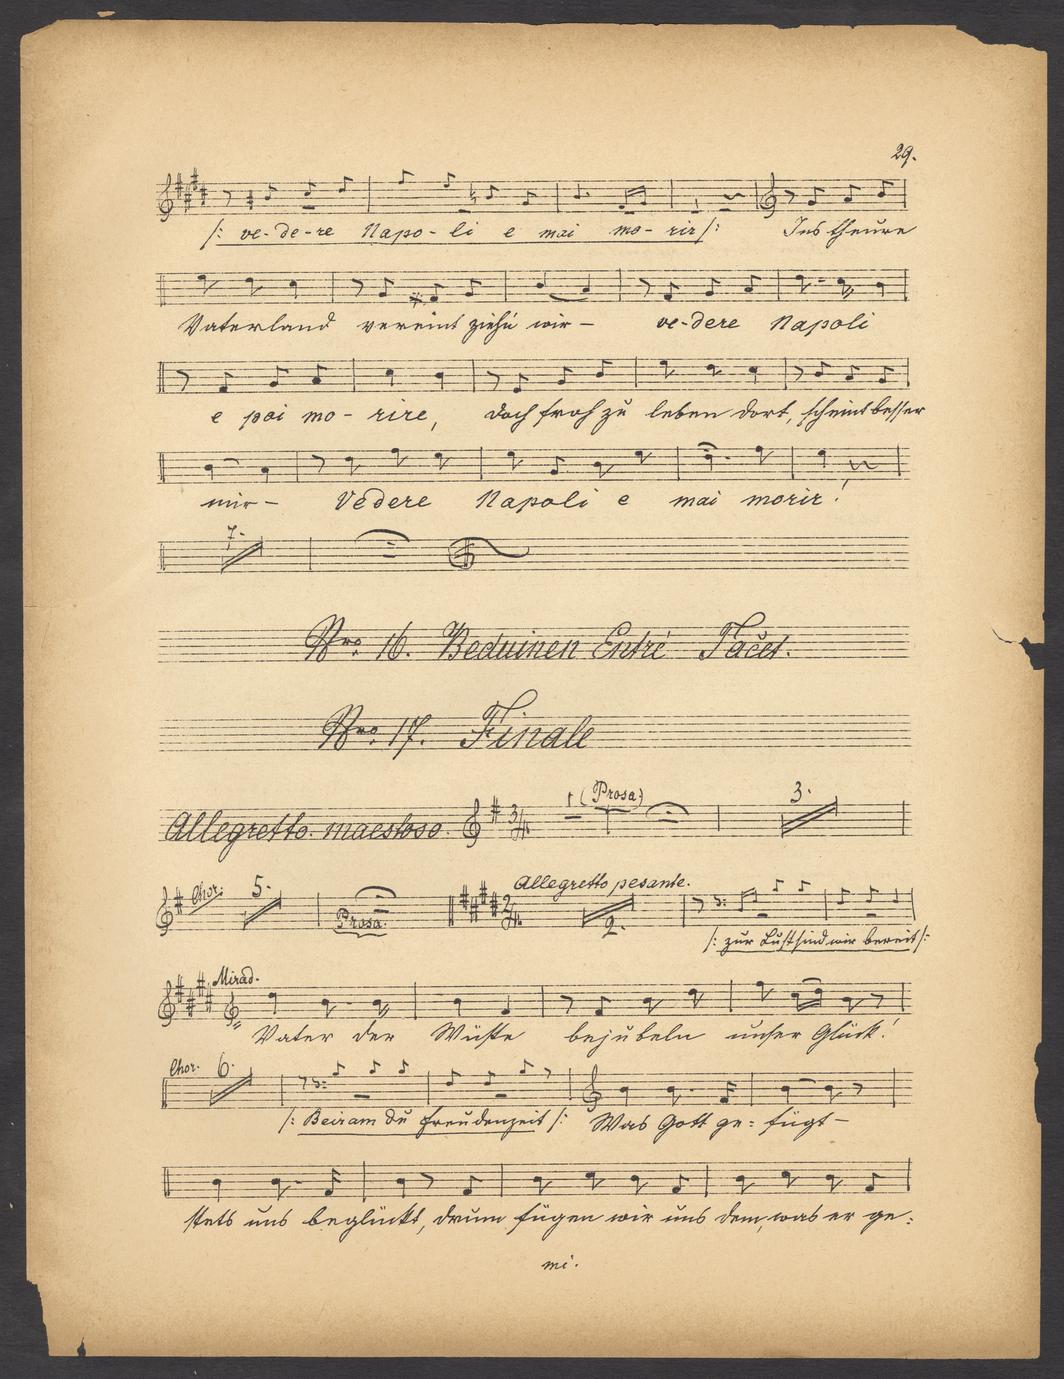 29.
/: ve-de-re Napo-li e mai mo-rir /: Ins theure
Vaterland vereint ziehn wir – ve-dere Napoli
e poi mo-rire, doch froh zu leben dort, scheint besser
mir – Vedere Napoli e mai morir!
7.
Nro. 16. Beduinen Entré Tacet.
Nro. 17. Finale
1 (Prosa) 3.
Allegretto maestoso. 3/4
Chor: 5. Prosa. Allegretto pesante. 2/4 2.
/: zur Lust sind wir bereit /:
Mirad.
Vater der Wüste bejubeln unser Glück!
Chor. 6.
/: Beiram du Freudenzeit /: Was Gott ge: fügt –
stets uns beglückt, drum fügen wir uns dem, was er ge:
mi.